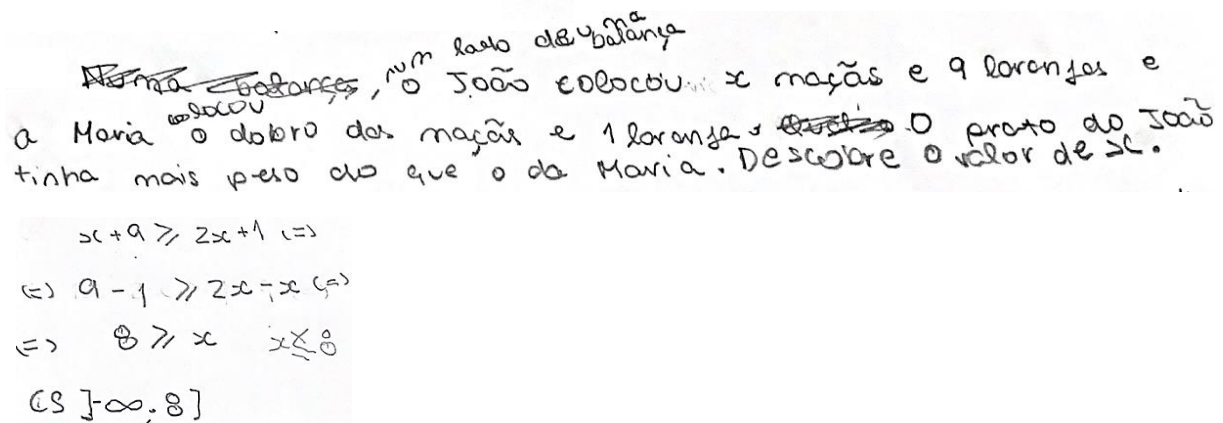 num lado de uma balança
Numa balança, o João colocou x maçãs e 9 laranjas e
a Maria colocou o dobro das maçãs e 1 laranja. O prato do João
tinha mais peso do que o da Maria. Descobre o valor de x.
x+9 ⩾ 2x+1 (=)
(=) 9-1 ⩾ 2x-x (=)
(=) 8 ⩾ x x ≤ 8
CS ]-∞; 8]